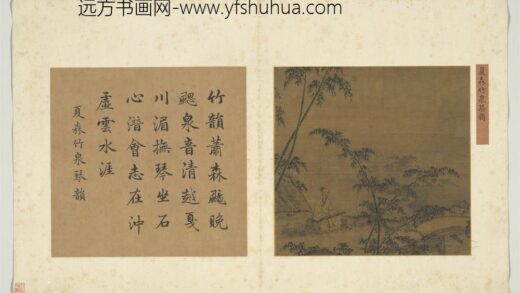 远方书画网-www.yfshuhua.com
夏森竹泉琴韻
竹韻蕭森颺晚
颸泉音清越戛
川湄撫琴坐石
心潛會志在沖
虛雲水涯
夏森竹泉琴韻